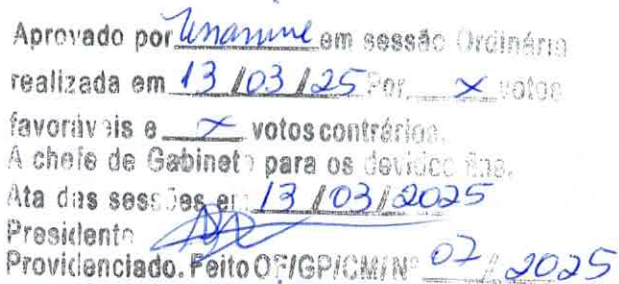 Aprovado por Unanime em sessão Ordinária
realizada em 13/03/25 Por, x votos
favoráveis e x votos contrários.
A chefe de Gabinete para os devidos fins.
Ata das sessões em 13/03/2025
Presidente
Providenciado. Feito OF/GP/CM/Nº 07/2025